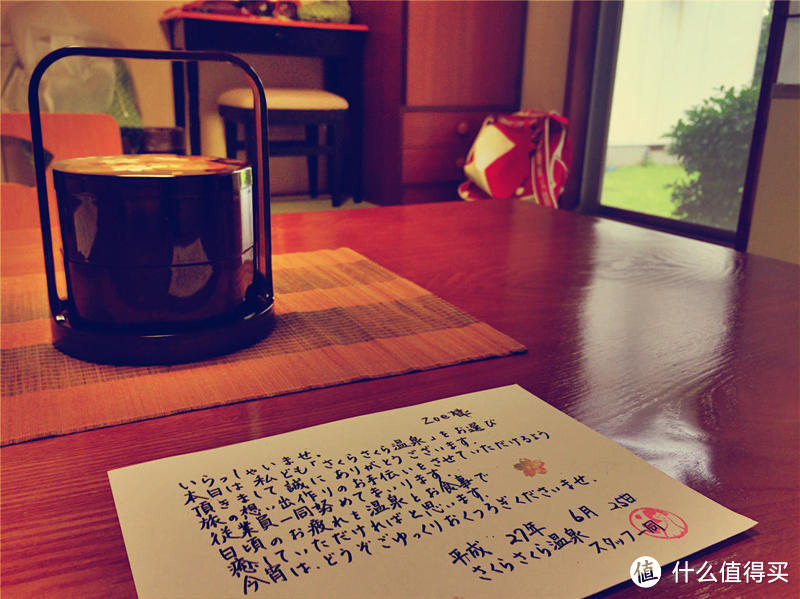 Zoe様
いらっしゃいませ。
本日は、私ども「さくらさくら温泉」をお選び
頂きまして誠にありがとうございます。
旅の想い出作りのお手伝いをさせていただけるよう
従業員一同努めてまいります。
日頃のお疲れを温泉とお食事で
癒していただければと思います。
今宵は、どうぞごゆっくりおくつろぎくださいませ。
平成 27年 6月 25日
さくらさくら温泉 スタッフ一同
值 什么值得买